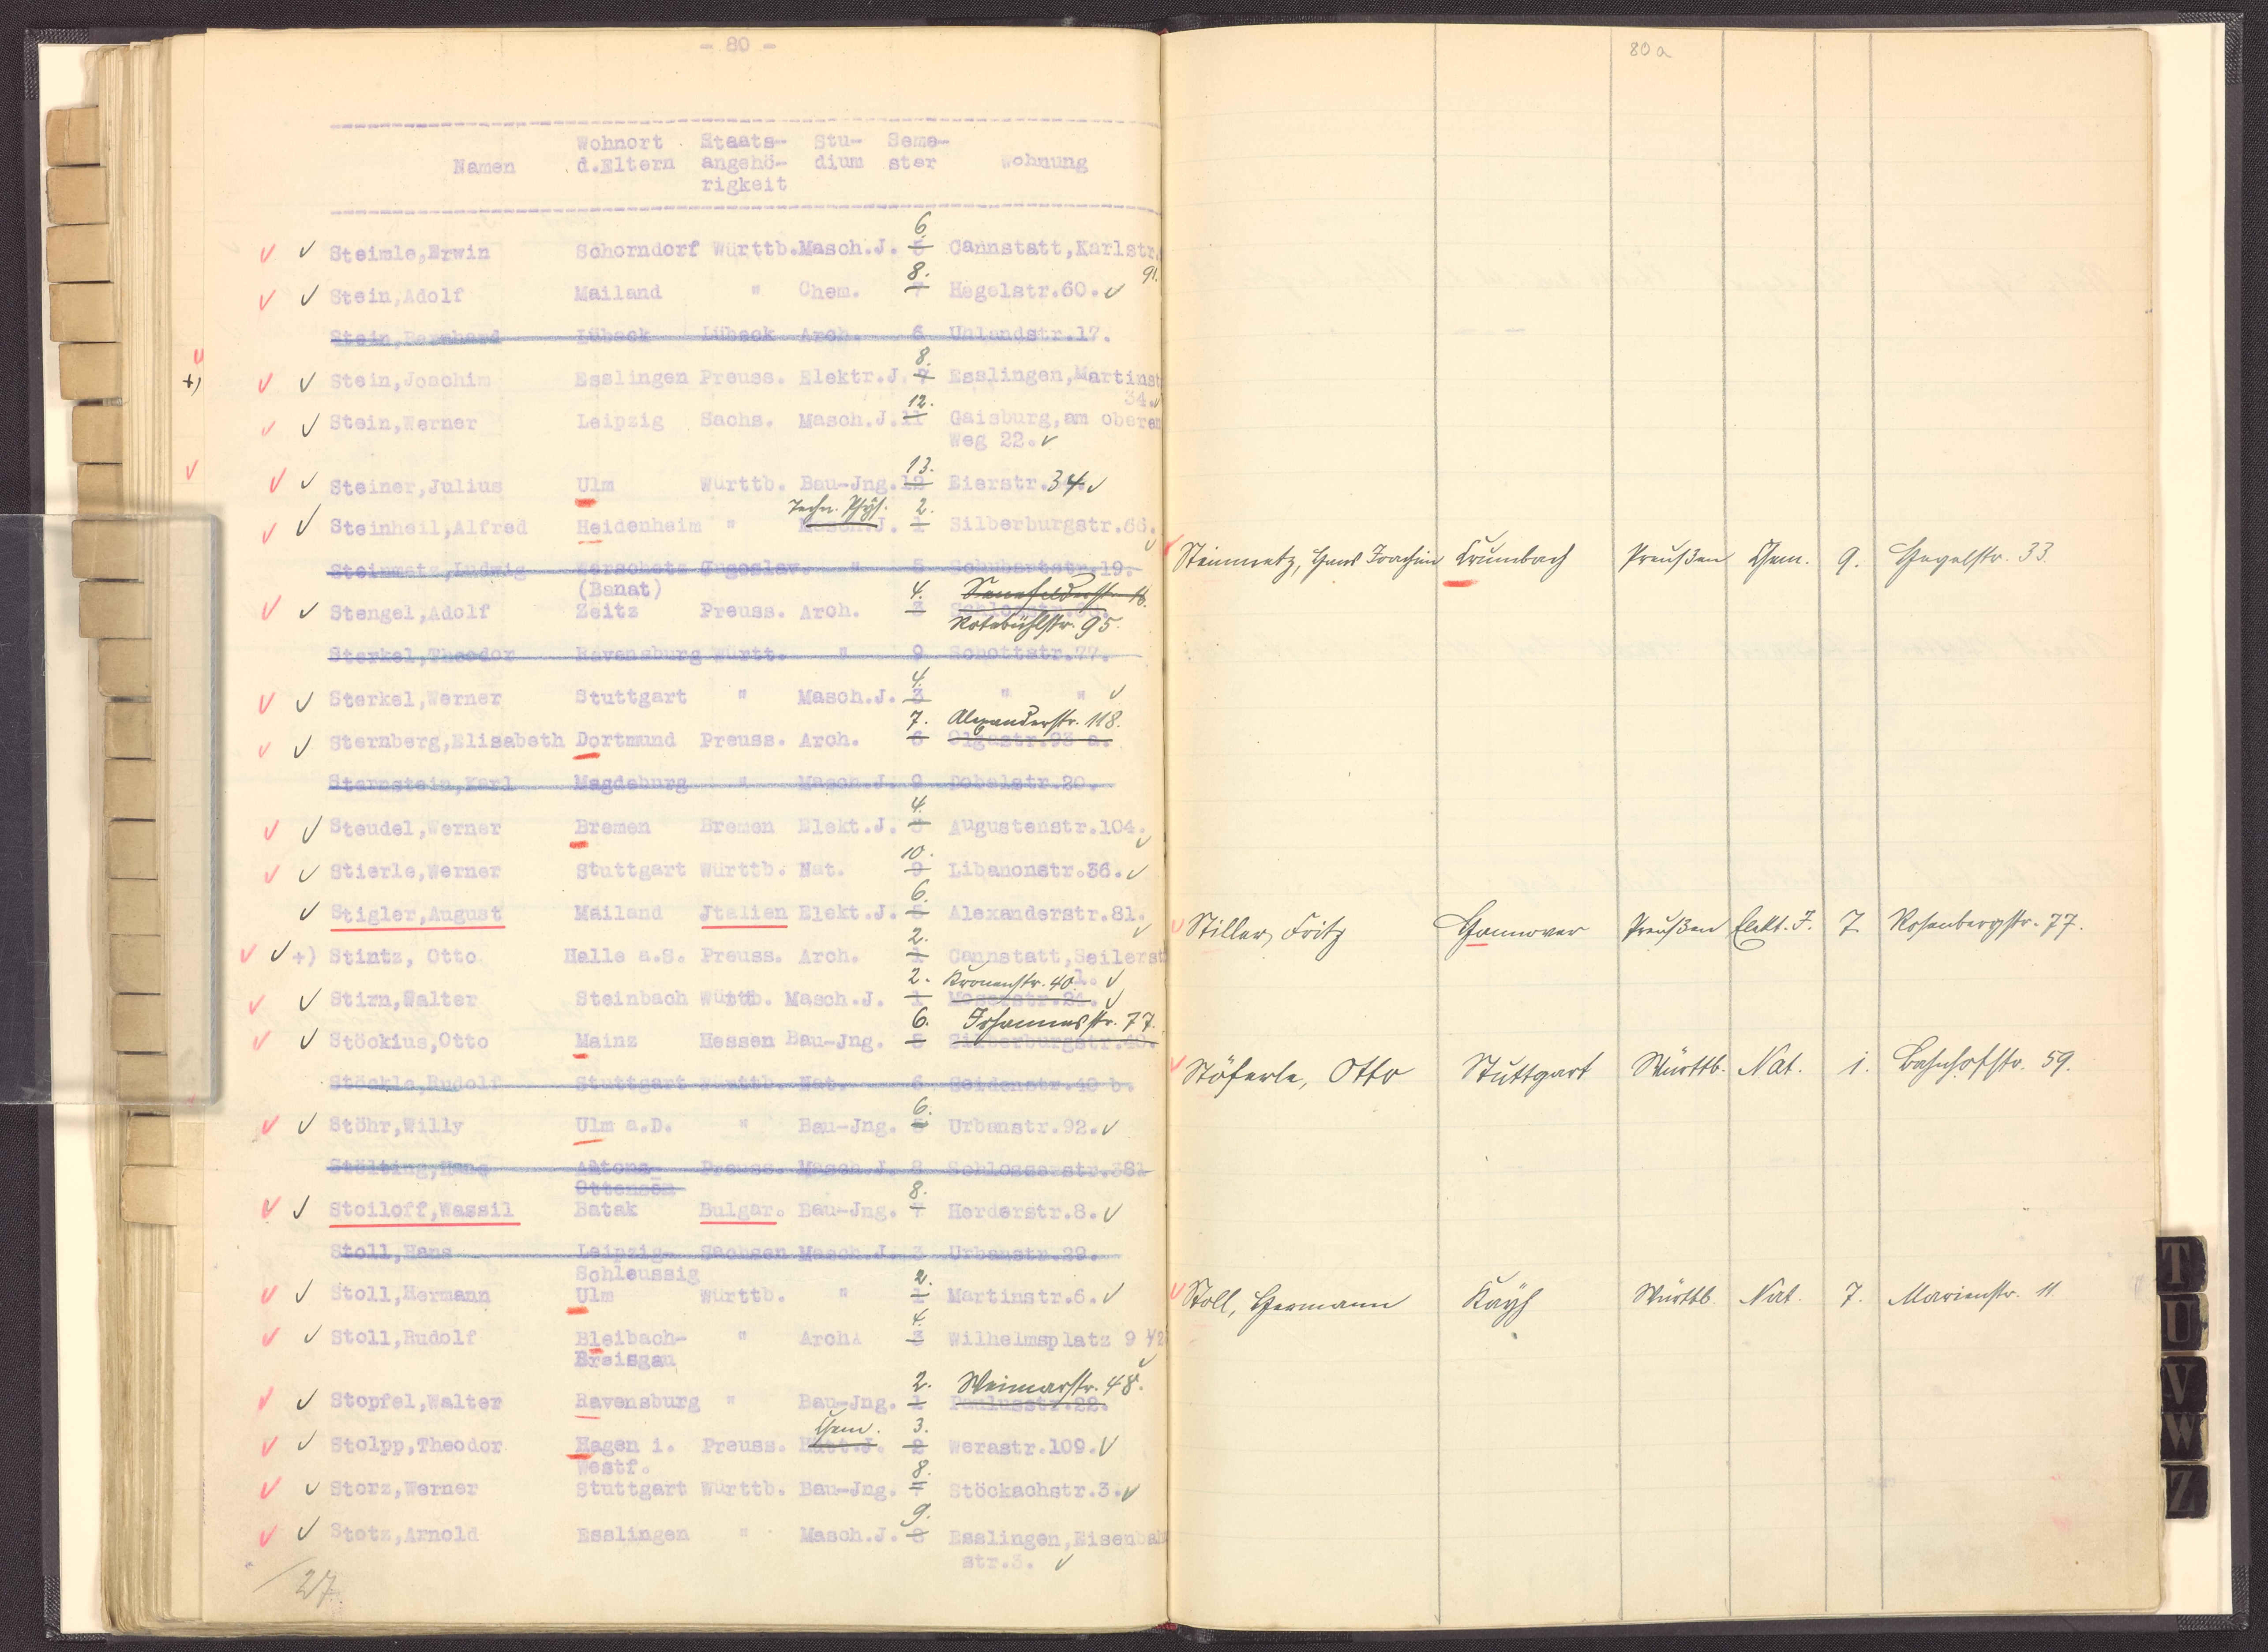 - 80 -
Namen Wohnort d.Eltern Staats-angehö-rigkeit Stu-dium Seme-ster Wohnung
6.
Steimle,Erwin Schorndorf Württb. Masch.J. 5 Cannstatt,Karlstr.
8. 91.
Stein,Adolf Mailand " Chem. 7 Hegelstr.60.
Stein,Bernhard Lübeck Lübeck Arch. 6 Uhlandstr.17.
8.
+) Stein,Joachim Esslingen Preuss. Elektr.J. 7 Esslingen,Martinst
12. 34.
Stein,Werner Leipzig Sachs. Masch.J. 11 Gaisburg,am oberen
Weg 22.
13.
Steiner,Julius Ulm Württb. Bau-Jng. 12 Eierstr.34.
Techn. Phys. 2.
Steinheil,Alfred Heidenheim " Masch.J. 1 Silberburgstr.66.
Steinmetz,Ludwig Werschetz Jugoslav. " 5 Schubartstr.19.
(Banat) 4. Sennefelderstr.
Stengel,Adolf Zeitz Preuss. Arch. 3
Rotebühlstr. 95.
Sterkel,Theodor Ravensburg Württ. " 9 Schottstr.77.
4.
Sterkel,Werner Stuttgart " Masch.J. 3 " "
7. Alexanderstr. 118.
Sternberg,Elisabeth Dortmund Preuss. Arch. 6 Olgastr.93 a.
Sternstein,Karl Magdeburg " Masch.J. 9 Dobelstr.20.
4.
Steudel,Werner Bremen Bremen Elekt.J. 3 Augustenstr.104.
10.
Stierle,Werner Stuttgart Württb. Nat. 9 Libanonstr.36.
6.
Stigler,August Mailand Jtalien Elekt.J. 5 Alexanderstr.81.
2.
+) Stintz, Otto Halle a.S. Preuss. Arch. 1 Cannstatt,Seilerst
2. Kronenstr. 40. 1.
Stirn,Walter Steinbach Württb. Masch.J. 1 Moserstr.24.
6. Johannesstr. 77.
Stöckius,Otto Mainz Hessen Bau-Jng. 5 Silberburgstr.40.
Stöckle,Rudolf Stuttgart Württb. Nat. 6 Seidenstr.40 b.
6.
Stöhr,Willy Ulm a.D. " Bau-Jng. 5 Urbanstr.92.
Stölting,Hans Altona- Preuss. Masch.J. 8 Schlosserstr.38l
Ottensen 8.
Stoiloff,Wassil Batak Bulgar. Bau-Jng. 7 Herderstr.8.
Stoll,Hans Leipzig- Sachsen Masch.J. 3 Urbanstr.29.
Schleussig 2.
Stoll,Hermann Ulm Württb. " 1 Martinstr.6.
4.
Stoll,Rudolf Bleibach- " Arch. 3 Wilhelmsplatz 9 1/2
Breisgau
2. Weimarstr. 48.
Stopfel,Walter Ravensburg " Bau-Jng. 1 Paulusstr.22.
Chem. 3.
Stolpp,Theodor Hagen i. Preuss. Hütt.J. 2 Werastr.109.
Westf. 8.
Storz,Werner Stuttgart Württb. Bau-Jng. 7 Stöckachstr.3.
9.
Stotz,Arnold Esslingen " Masch.J. 8 Esslingen,Eisenbah
str.3.
27.
80a
Steinmetz, Hans Joachim Crumbach Preußen Chem. 9. Hegelstr. 33.
Stiller, Fritz Hannover Preußen Elekt. J. 7. Rosenbergstr. 77.
Stöferle, Otto Stuttgart Württb. Nat. 1. Bahnhofstr. 59.
Stoll, Hermann Kayh Württb. Nat. 7. Marienstr. 11
T
U
V
W
Z